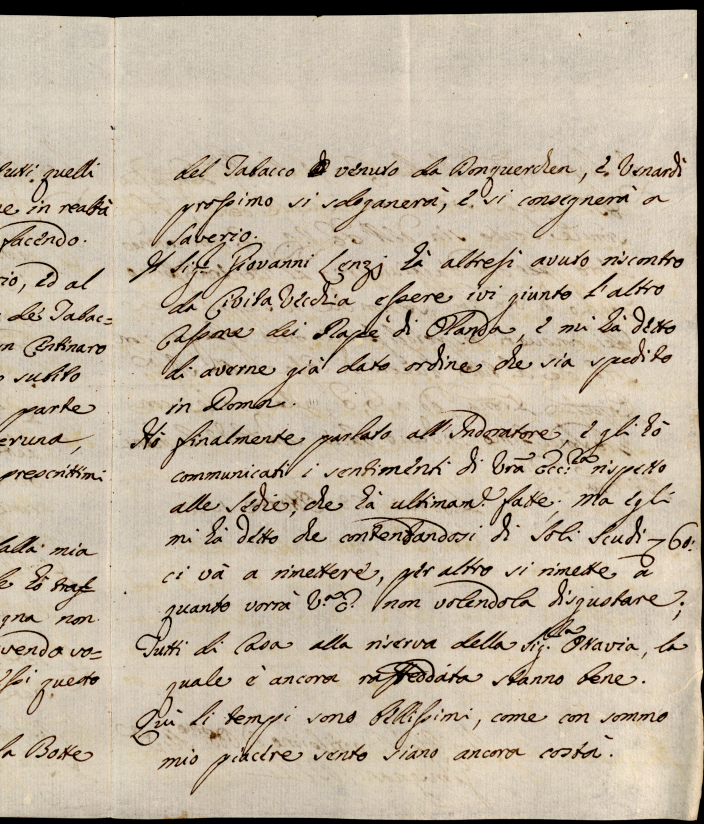 tutti quelli
ne in realtà
facendo.
rio, ed al
de Tabac=
un Centinaro
subito
parte
eruna,
prescrittimi
dalla mia
le hò tras
gna non
vendo vo=
questo
la Botte
del Tabacco venuto da Donquerchen, e Venardi
prossimo si sdoganerà, e si consegnerà a
Saverio.
Il Sig.r Giovanni Lenzi hà altresi avuto riscontro
da Civita Vecchia essere ivi giunto l'altro
Cassone dei Rapè di Olanda, e mi hà detto
di averne già dato ordine che sia spedito
in Roma.
Hò finalmente parlato all'Indoratore, e gli hò
communicati i sentimenti di Vrã Ecc.za rispetto
alle Sedie, che hà ultimam.e fatte; ma egli
mi hà detto che contentandosi di soli Scudi 760:
ci và a rimettere, per altro si rimette a
quanto vorrà V.a E. non volendola disgustare;
Tutti di Casa alla riserva della Sig.ra Ottavia, la
quale è ancora raffreddata stanno bene.
Qui li tempi sono bellissimi, come con sommo
mio piacere sento siano ancora costà.